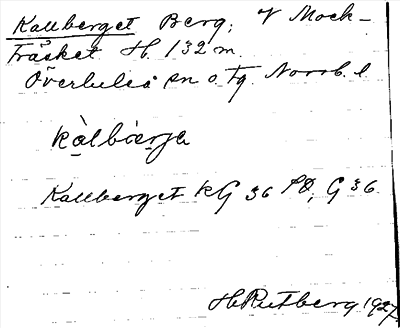 Kallberget Berg; V Mock-
Träsket H. 132 m.
Överluleå sn o. tg. Norrb. l
kàlbærje
Kallberget KG 36 SO, G 36.
H. Rutberg 1927.